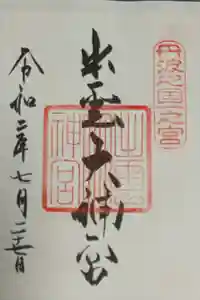 丹波国一之宮
出雲大神宮
出雲
神宮
令和二年七月二十七日